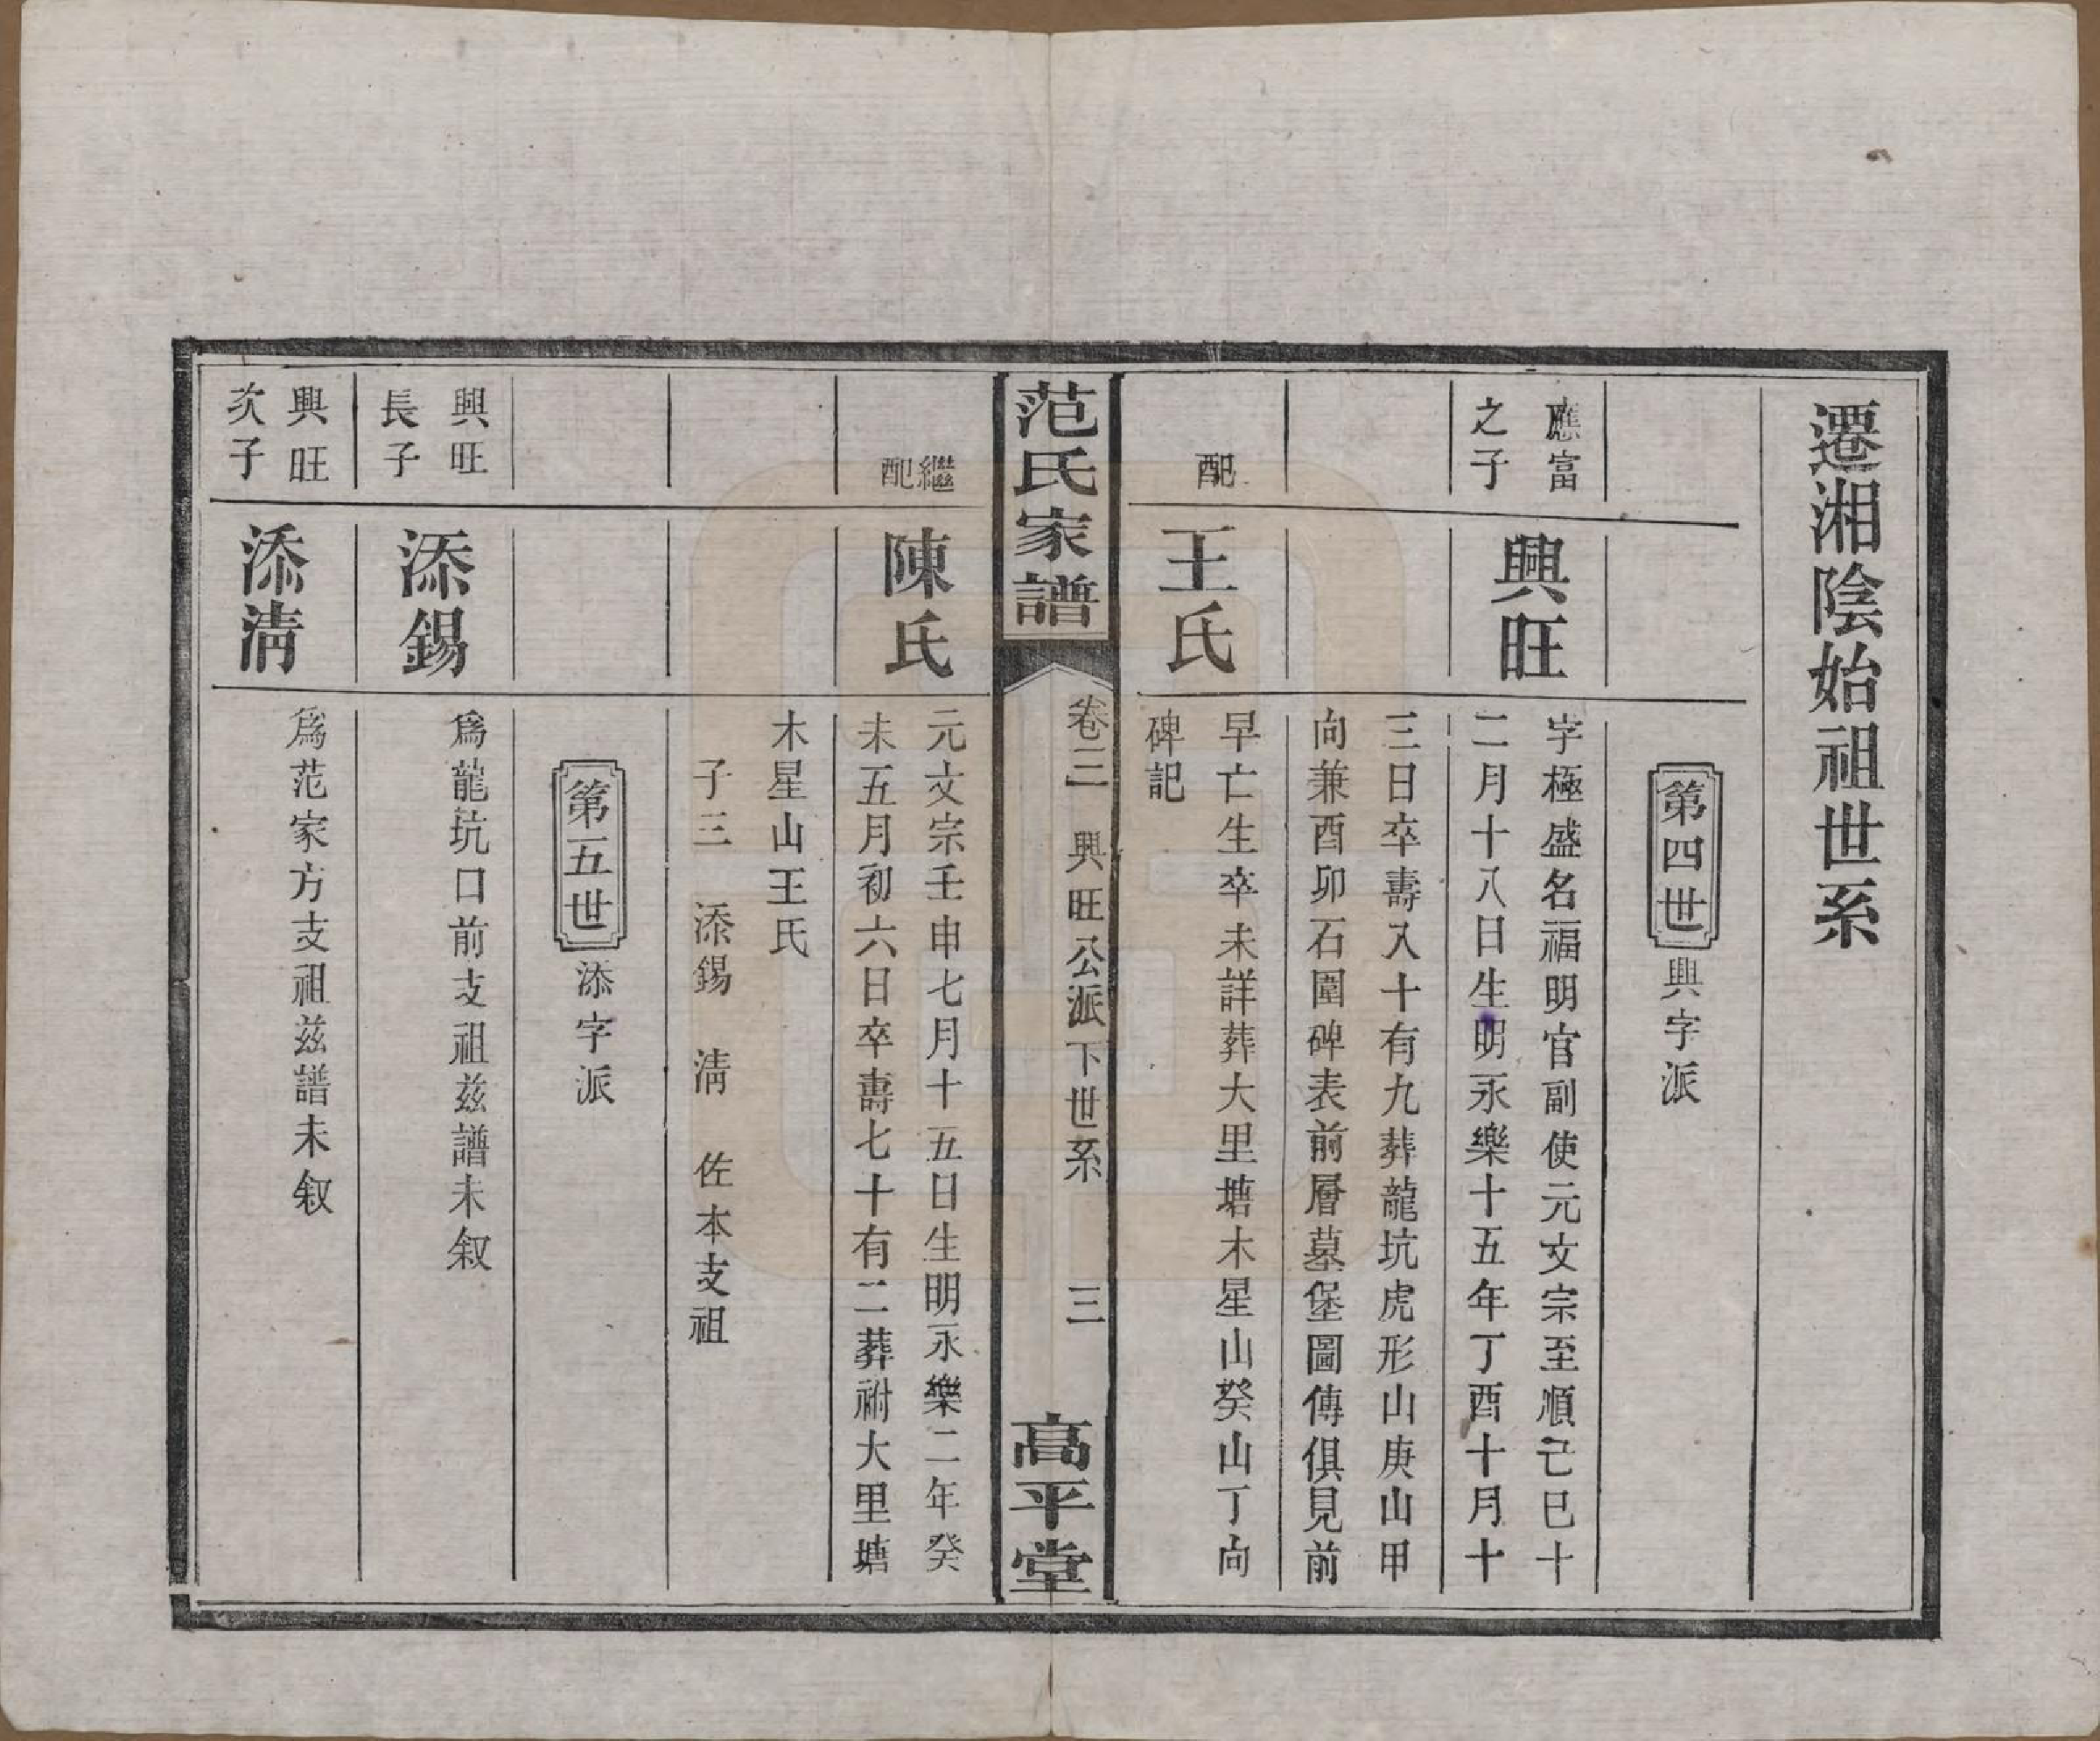 遷湘陰始祖世系
第四世
興字派
應富
之子
興旺
字極盛名福明官副使元文宗至順己巳十
二月十八日生明永樂十五年丁酉十月十
三日卒壽八十有九葬龍坑虎形山庚山甲
向兼酉卯石圍碑表前層墓堡圖傳俱見前
配
王氏
早亡生卒未詳葬大里塘木星山癸山丁向
碑記
范氏家譜
卷三 興旺公派下世系 三
高平堂
繼
配
陳氏
元文宗壬申七月十五日生明永樂二年癸
未五月初六日卒壽七十有二葬祔大里塘
木星山王氏
子三 添錫 淸 佐本支祖
第五世
添字派
興旺
長子
添錫
爲龍坑口前支祖兹譜未叙
興旺
次子
添淸
爲范家方支祖兹譜未叙